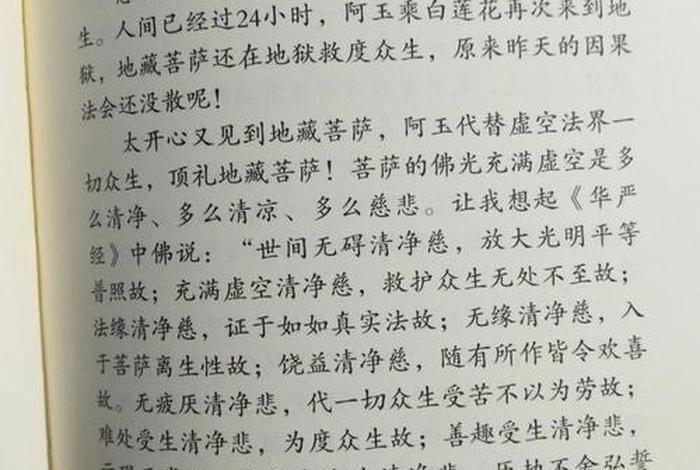 生。人间已经过24小时，阿玉乘白莲花再次来到地
狱，地藏菩萨还在地狱救度众生，原来昨天的因果
法会还没散呢！
太开心又见到地藏菩萨，阿玉代替虚空法界一
切众生，顶礼地藏菩萨！菩萨的佛光充满虚空是多
么清净、多么清凉、多么慈悲。让我想起《华严
经》中佛说：“世间无碍清净慈，放大光明平等
普照故；充满虚空清净慈，救护众生无处不至故；
法缘清净慈，证于如如真实法故；无缘清净慈，入
于菩萨离生性故；饶益清净慈，随有所作皆令欢喜
故。无疲厌清净悲，代一切众生受苦不以为劳故；
难处受生清净悲，为度众生故；善趣受生清净悲，
清净悲，历劫不舍弘誓